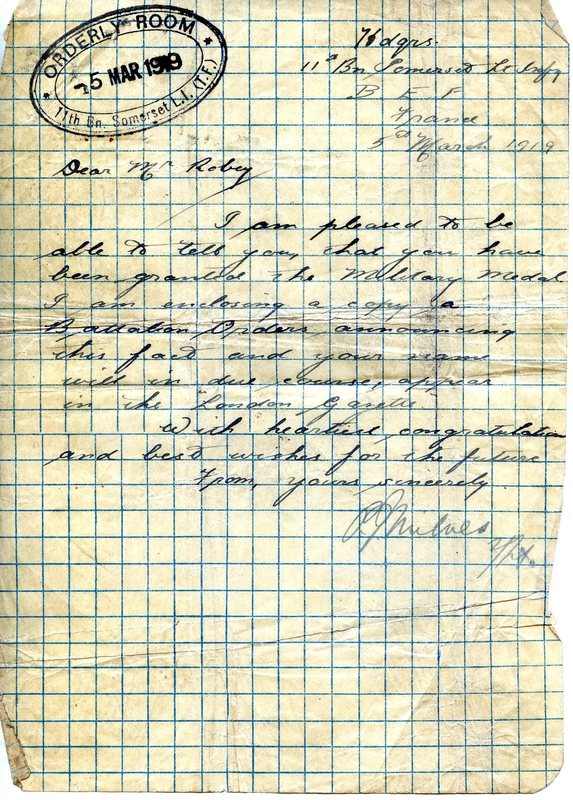 ORDERLY ROOM
5 MAR 1919
11th Bn. Somerset L.I. (T.F.)
Hdqrs.
11th Bn Somerset Lt Infy
B E F
France
5th March 1919
Dear Mr Robey
I am pleased to be
able to tell you, that you have
been granted the Military Medal
I am enclosing a copy a
Battalion Orders, announcing
this fact and your name
will in due course, appear
in the "London Gazette"
With heartiest congratulation
and best wishes for the future
From, yours sincerely